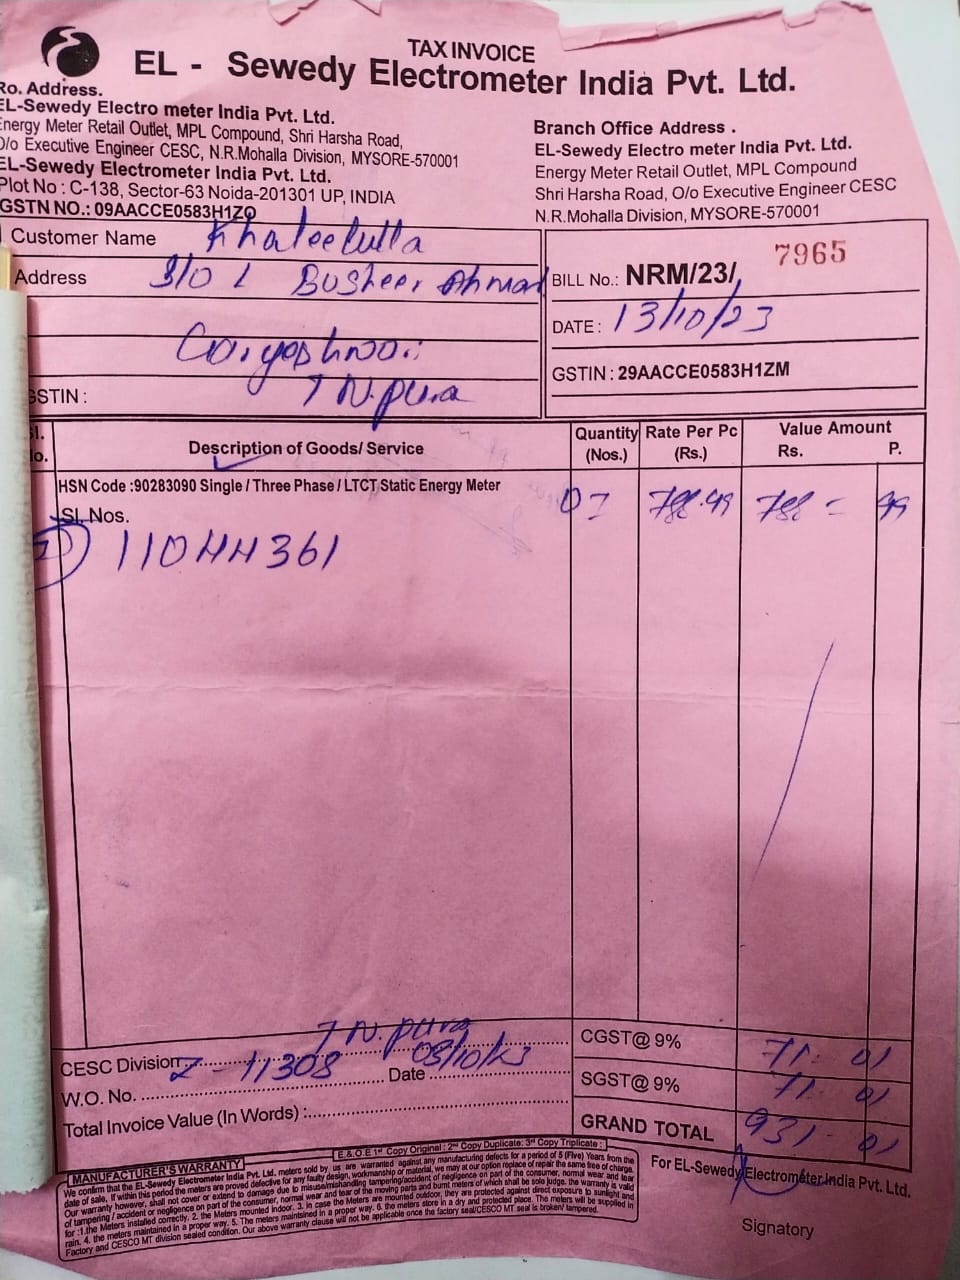 TAX INVOICE
EL - Sewedy Electrometer India Pvt. Ltd.
Ro. Address.
EL-Sewedy Electro meter India Pvt. Ltd.
Energy Meter Retail Outlet, MPL Compound, Shri Harsha Road,
O/o Executive Engineer CESC, N.R.Mohalla Division, MYSORE-570001
EL-Sewedy Electrometer India Pvt. Ltd.
Plot No : C-138, Sector-63 Noida-201301 UP, INDIA
GSTN NO.: 09AACCE0583H1ZQ
Branch Office Address .
EL-Sewedy Electro meter India Pvt. Ltd.
Energy Meter Retail Outlet, MPL Compound
Shri Harsha Road, O/o Executive Engineer CESC
N.R.Mohalla Division, MYSORE-570001
Customer Name Khaleelulla
Address S/O L Busheer Ahmad
T N. pura
GSTIN :
7965
BILL No.: NRM/23/
DATE : 13/10/23
GSTIN : 29AACCE0583H1ZM
Sl. No. Description of Goods/ Service Quantity (Nos.) Rate Per Pc (Rs.) Value Amount Rs. P.
HSN Code :90283090 Single / Three Phase / LTCT Static Energy Meter
Sl.Nos. 788.99 788 = 99
1) 110HH361
CESC Division T N. pura
W.O. No. Z - 11308 Date 08/10/23
Total Invoice Value (In Words) :
CGST@ 9% 71. 01
SGST@ 9% 71. 01
GRAND TOTAL 931. 01
E.& O.E 1st Copy Original : 2nd Copy Duplicate: 3rd Copy Triplicate :
MANUFACTURER'S WARRANTY
We confirm that the EL-Sewedy Electrometer India Pvt. Ltd. meters sold by us are warranted against any manufacturing defects for a period of 5 (Five) Years from the
date of sale. If within this period the meters are proved defective for any faulty design, workmanship or material, we may at our option replace of repair the same free of charge.
Our warranty however, shall not cover or extend to damage due to misuse/mishandling tampering/accident of negligence on part of the consumer, normal wear and tear
of tampering / accident or negligence on part of the consumer, normal wear and tear of the moving parts and burnt meters of which shall be sole judge. the warranty is valid
for :1.the Meters installed correctly. 2. the Meters mounted indoor. 3. in case the Meters are mounted outdoor, they are protected against direct exposure to sunlight and
rain. 4. the meters maintained in a proper way. 5. The meters maintained in a proper way. 6. the meters store in a dry and protected place. The meters will be supplied in
Factory and CESCO MT division sealed condition. Our above warranty clause will not be applicable once the factory seal/CESCO MT seal is broken/ tampered.
For EL-Sewedy Electrometer India Pvt. Ltd.
Signatory